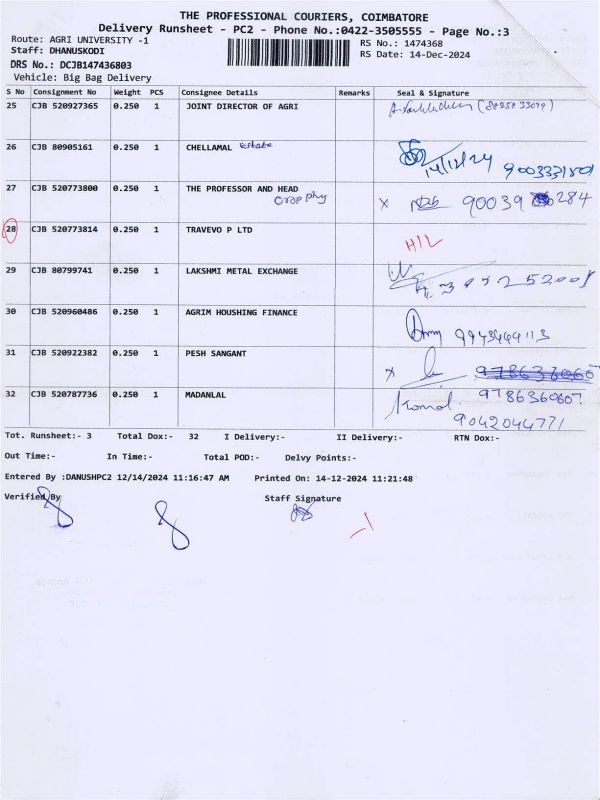 THE PROFESSIONAL COURIERS, COIMBATORE
Delivery Runsheet - PC2 - Phone No.:0422-3505555 - Page No.:3
Route: AGRI UNIVERSITY -1
Staff: DHANUSKODI
RS No.: 1474368
RS Date: 14-Dec-2024
DRS No.: DCJB147436803
Vehicle: Big Bag Delivery
S No Consignment No Weight PCS Consignee Details Remarks Seal & Signature
25 CJB 520927365 0.250 1 JOINT DIRECTOR OF AGRI
26 CJB 80905161 0.250 1 CHELLAMAL Estate
14/12/24
27 CJB 520773800 0.250 1 THE PROFESSOR AND HEAD
crop phy
x 90039 284
28 CJB 520773814 0.250 1 TRAVEVO P LTD H/L
29 CJB 80799741 0.250 1 LAKSHMI METAL EXCHANGE
30 CJB 520960486 0.250 1 AGRIM HOUSHING FINANCE
31 CJB 520922382 0.250 1 PESH SANGANT x
9786360607
32 CJB 520787736 0.250 1 MADANLAL Komal
9042044771
Tot. Runsheet:- 3 Total Dox:- 32 I Delivery:- II Delivery:- RTN Dox:-
Out Time:- In Time:- Total POD:- Delvy Points:-
Entered By :DANUSHPC2 12/14/2024 11:16:47 AM Printed On: 14-12-2024 11:21:48
Verified By Staff Signature
-1